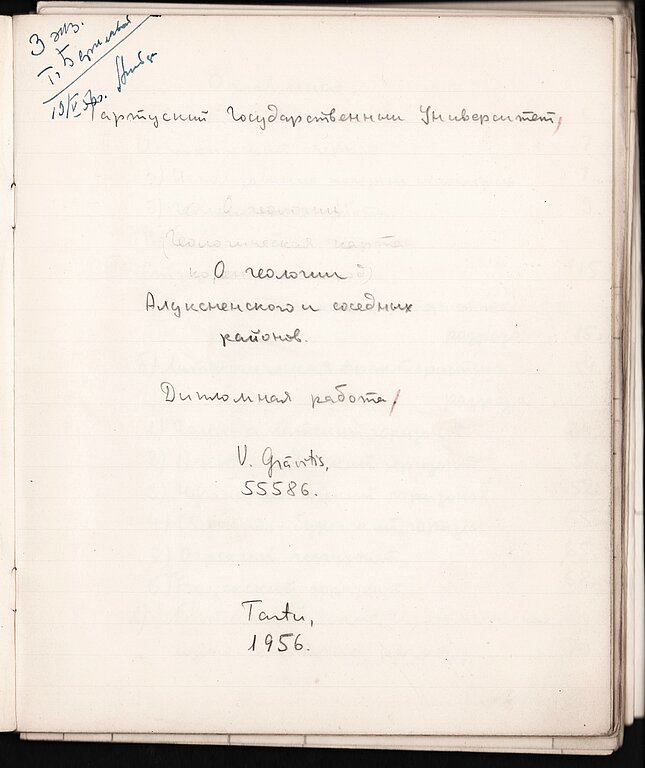 3 экз.
Тартуский Государственный Университет,
О геологии
Алуксненского и соседных
районов.
Дипломная работа,
V. Grāvītis,
55586.
Tartu,
1956.